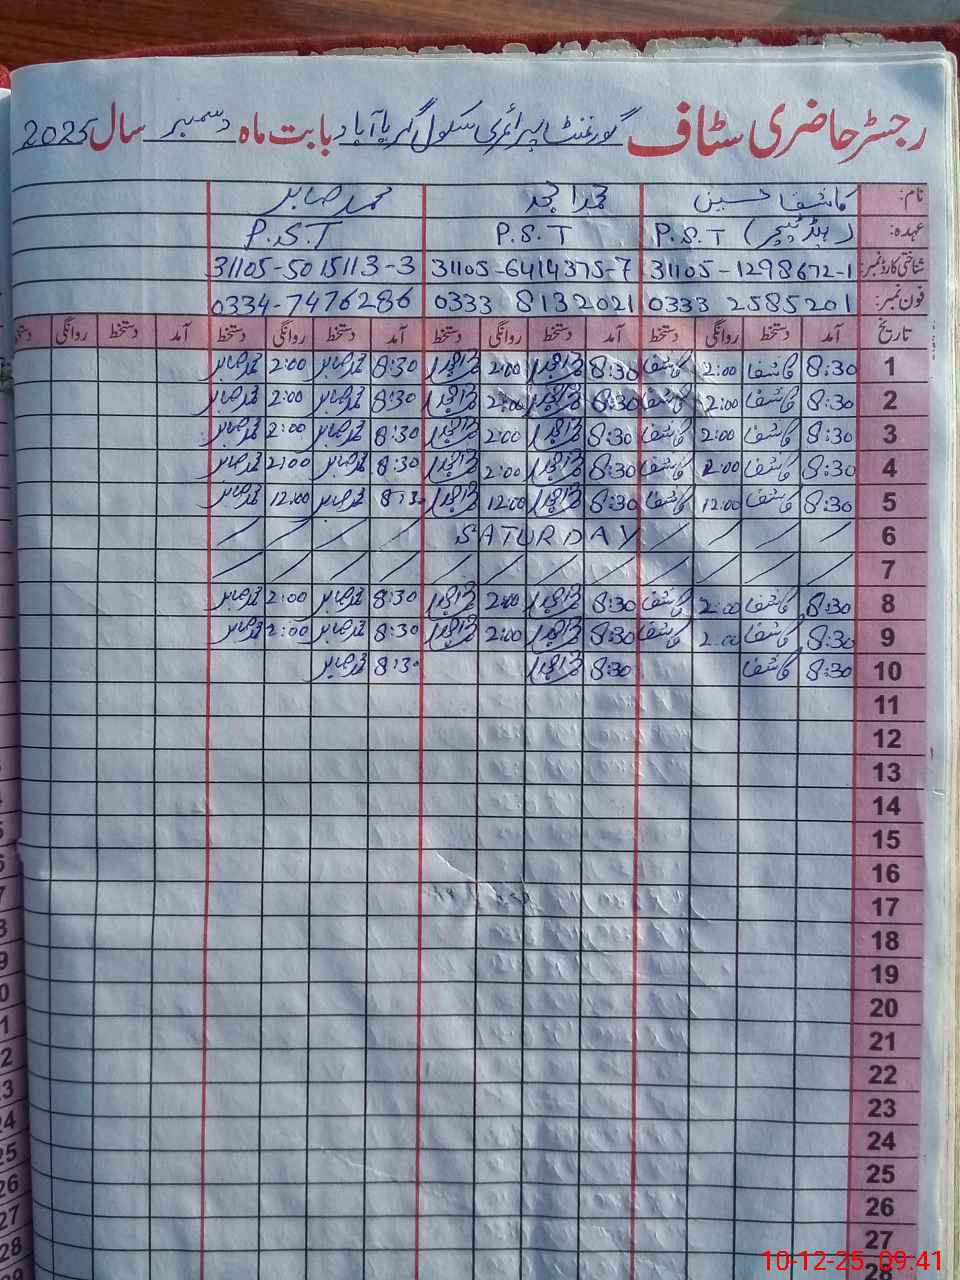 رجسٹر حاضری سٹاف گورنمنٹ پرائمری سکول گہر باآباد بابت ماہ دسمبر سال 2025
نام: کاشف حسین محمد امجد محمد صابر
عہدہ: P.S.T (ہیڈ ٹیچر) P.S.T P.S.T
شناختی کارڈ نمبر: 31105-1298672-1 31105-6414375-7 31105-5015113-3
فون نمبر: 0333 2585201 0333 8132021 0334-7476286
تاریخ آمد دستخط روانگی دستخط آمد دستخط روانگی دستخط آمد دستخط روانگی دستخط آمد دستخط روانگی دستخط
1 8:30 کاشف 2:00 کاشف 8:30 2:00 8:30 محمد صابر 2:00 محمد صابر
2 8:30 کاشف 2:00 کاشف 8:30 2:00 8:30 محمد صابر 2:00 محمد صابر
3 8:30 کاشف 2:00 کاشف 8:30 2:00 8:30 محمد صابر 2:00 محمد صابر
4 8:30 کاشف 2:00 کاشف 8:30 2:00 8:30 محمد صابر 2:00 محمد صابر
5 8:30 کاشف 12:00 کاشف 8:30 12:00 8:30 محمد صابر 12:00 محمد صابر
6 SATURDAY
7
8 8:30 کاشف 2:00 کاشف 8:30 2:00 8:30 محمد صابر 2:00 محمد صابر
9 8:30 کاشف 2:00 کاشف 8:30 2:00 8:30 محمد صابر 2:00 محمد صابر
10 8:30 کاشف 8:30 8:30 محمد صابر
11
12
13
14
15
16
17
18
19
20
21
22
23
24
25
26
27
28
10-12-25 09:41